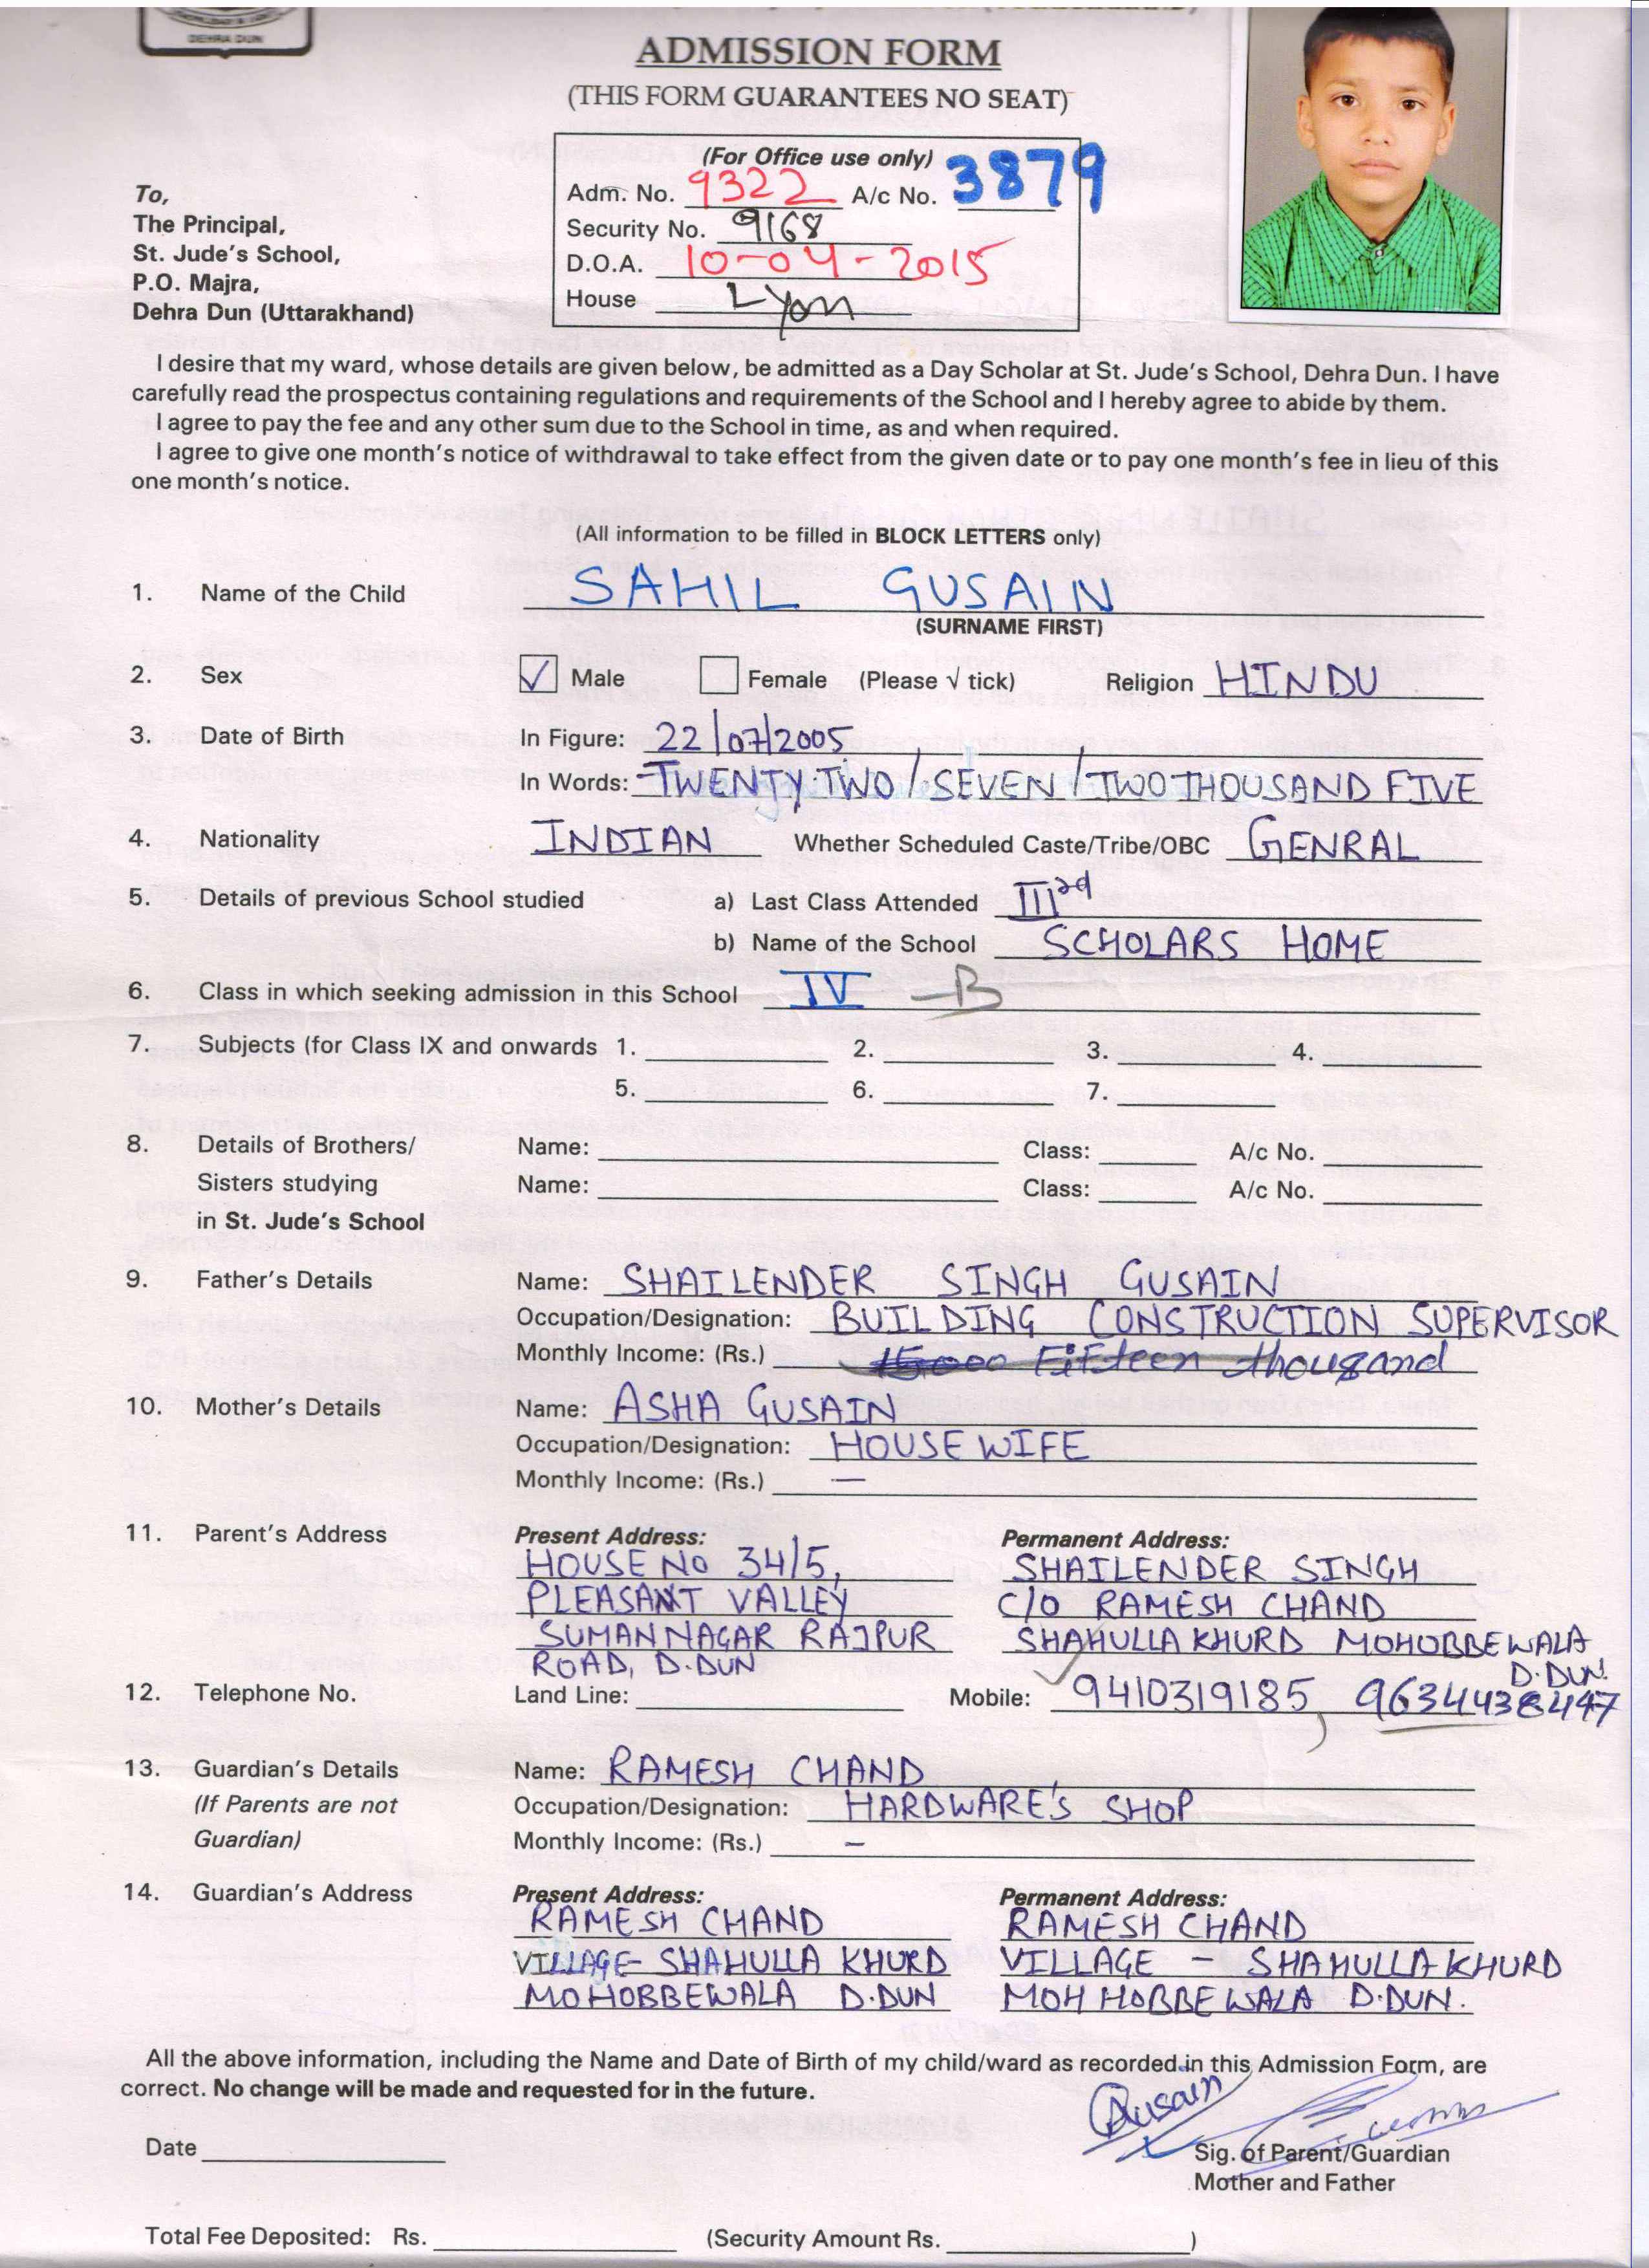 DEHRA DUN
ADMISSION FORM
(THIS FORM GUARANTEES NO SEAT)
(For Office use only)
Adm. No. 9322 A/c No. 3879
Security No. 9168
D.O.A. 10-04-2015
House Lyon
To,
The Principal,
St. Jude's School,
P.O. Majra,
Dehra Dun (Uttarakhand)
I desire that my ward, whose details are given below, be admitted as a Day Scholar at St. Jude's School, Dehra Dun. I have
carefully read the prospectus containing regulations and requirements of the School and I hereby agree to abide by them.
I agree to pay the fee and any other sum due to the School in time, as and when required.
I agree to give one month's notice of withdrawal to take effect from the given date or to pay one month's fee in lieu of this
one month's notice.
(All information to be filled in BLOCK LETTERS only)
1. Name of the Child SAHIL GUSAIN
(SURNAME FIRST)
2. Sex Male Female (Please √ tick) Religion HINDU
3. Date of Birth In Figure: 22/07/2005
In Words: TWENTY TWO / SEVEN / TWO THOUSAND FIVE
4. Nationality INDIAN Whether Scheduled Caste/Tribe/OBC GENRAL
5. Details of previous School studied a) Last Class Attended III rd
b) Name of the School SCHOLARS HOME
6. Class in which seeking admission in this School IV - B
7. Subjects (for Class IX and onwards 1. 2. 3. 4.
5. 6. 7.
8. Details of Brothers/ Name: Class: A/c No.
Sisters studying Name: Class: A/c No.
in St. Jude's School
9. Father's Details Name: SHAILENDER SINGH GUSAIN
Occupation/Designation: BUILDING CONSTRUCTION SUPERVISOR
Monthly Income: (Rs.) 15000 Fifteen thousand
10. Mother's Details Name: ASHA GUSAIN
Occupation/Designation: HOUSE WIFE
Monthly Income: (Rs.) —
11. Parent's Address Present Address: Permanent Address:
HOUSE No 34/5, SHAILENDER SINGH
PLEASANT VALLEY C/O RAMESH CHAND
SUMAN NAGAR RAJPUR SHAHULLA KHURD MOHOBBEWALA
ROAD, D.DUN D.DUN.
12. Telephone No. Land Line: Mobile: 9410319185, 9634438447
13. Guardian's Details Name: RAMESH CHAND
(If Parents are not Occupation/Designation: HARDWARE'S SHOP
Guardian) Monthly Income: (Rs.) –
14. Guardian's Address Present Address: Permanent Address:
RAMESH CHAND RAMESH CHAND
VILLAGE- SHAHULLA KHURD VILLAGE - SHAHULLA KHURD
MOHOBBEWALA D.DUN MOHHOBBEWALA D.DUN.
All the above information, including the Name and Date of Birth of my child/ward as recorded in this Admission Form, are
correct. No change will be made and requested for in the future.
Gusain
Date Sig. of Parent/Guardian
Mother and Father
Total Fee Deposited: Rs. (Security Amount Rs. )